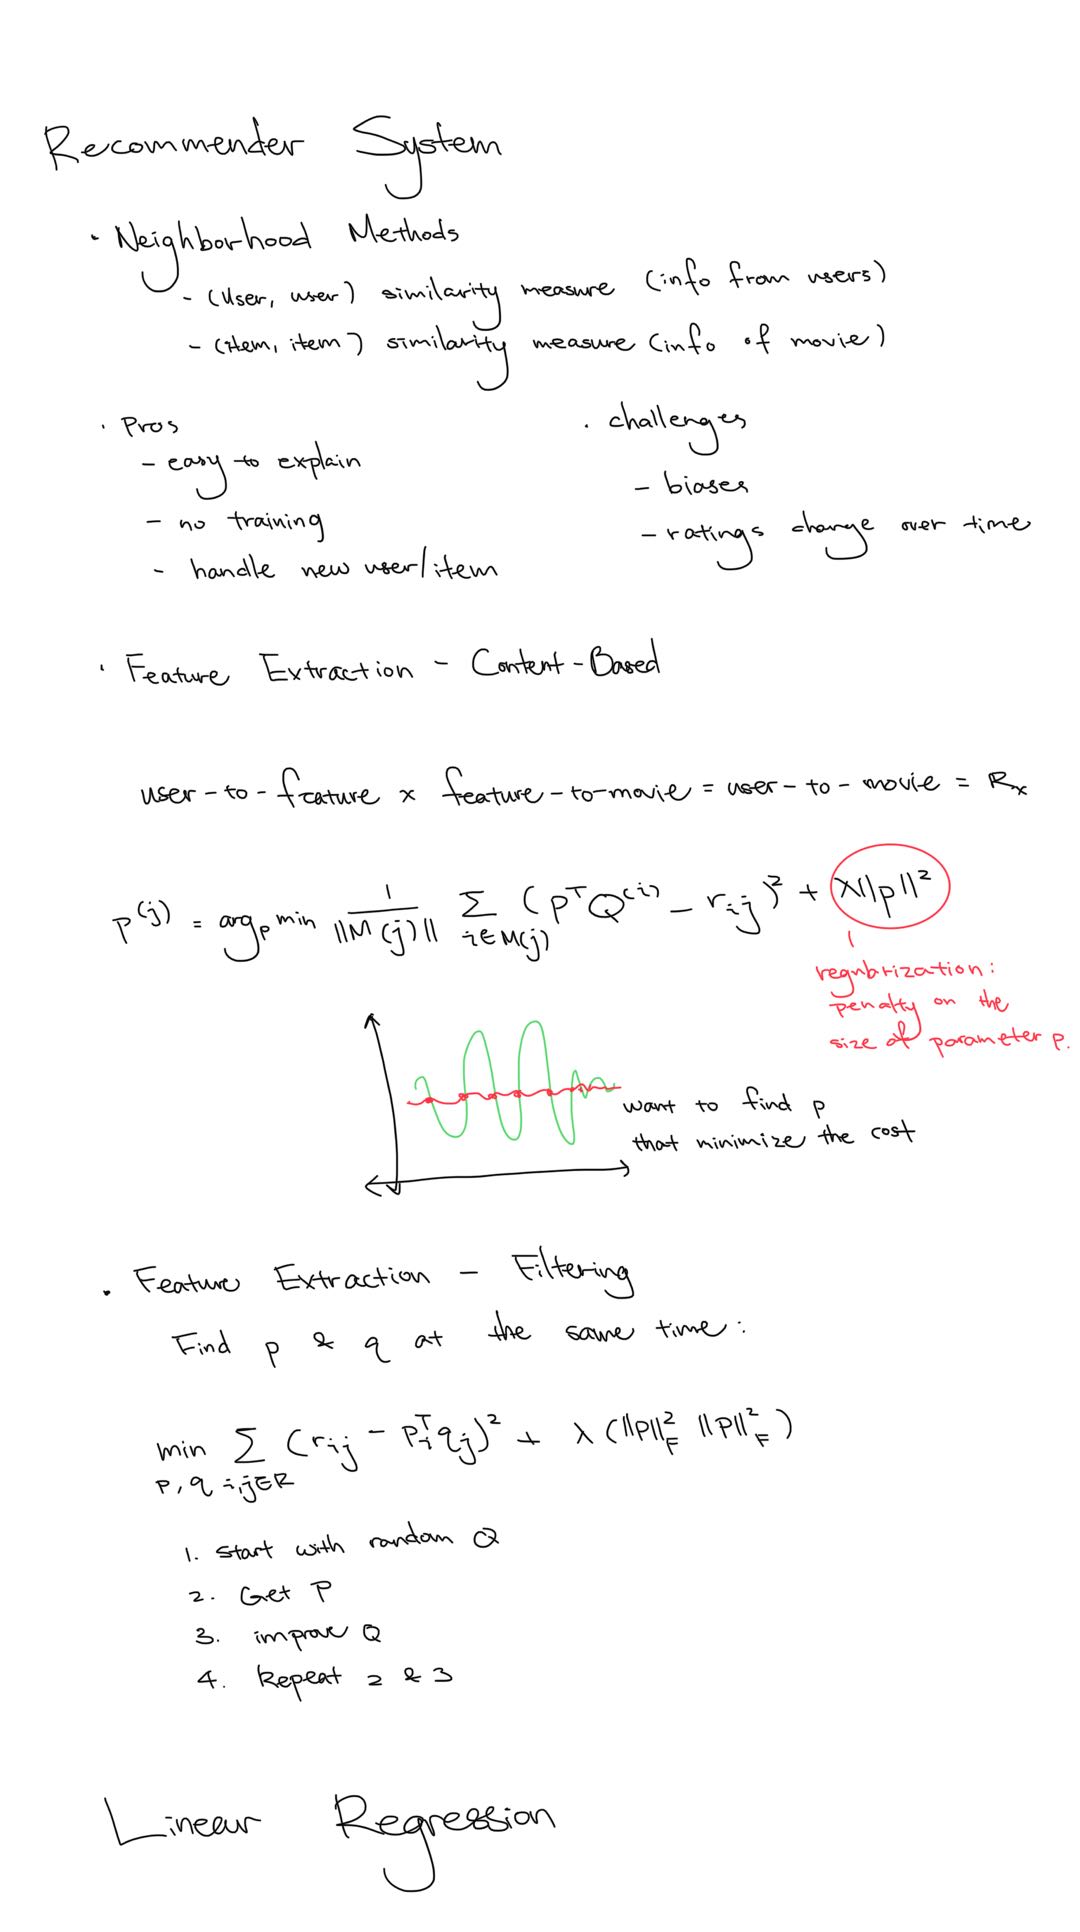 Recommender System
· Neighborhood Methods
- (User, user) similarity measure (info from users)
- (item, item) similarity measure (info of movie)
· Pros
- easy to explain
- no training
- handle new user/item
· challenges
- biases
- ratings change over time
· Feature Extraction - Content-Based
user-to-feature x feature-to-movie = user-to-movie = Rx
p^(j) = arg_p min 1/||M(j)|| Σ_{i∈M(j)} (p^T Q^(i) - r_ij)² + λ||p||²
regularization:
penalty on the
size of parameter p.
want to find p
that minimize the cost
· Feature Extraction - Filtering
Find p & q at the same time:
min_{P,q} Σ_{i,j∈R} (r_ij - P_i^T q_j)² + λ(||P||²_F ||P||²_F)
1. Start with random Q
2. Get P
3. improve Q
4. Repeat 2 & 3
Linear Regression